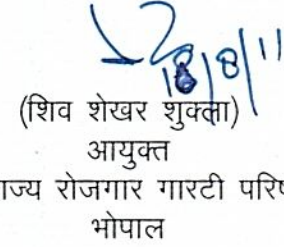 18/8/11
(शिव शेखर शुक्ला)
आयुक्त
राज्य रोजगार गारटी परिष
भोपाल